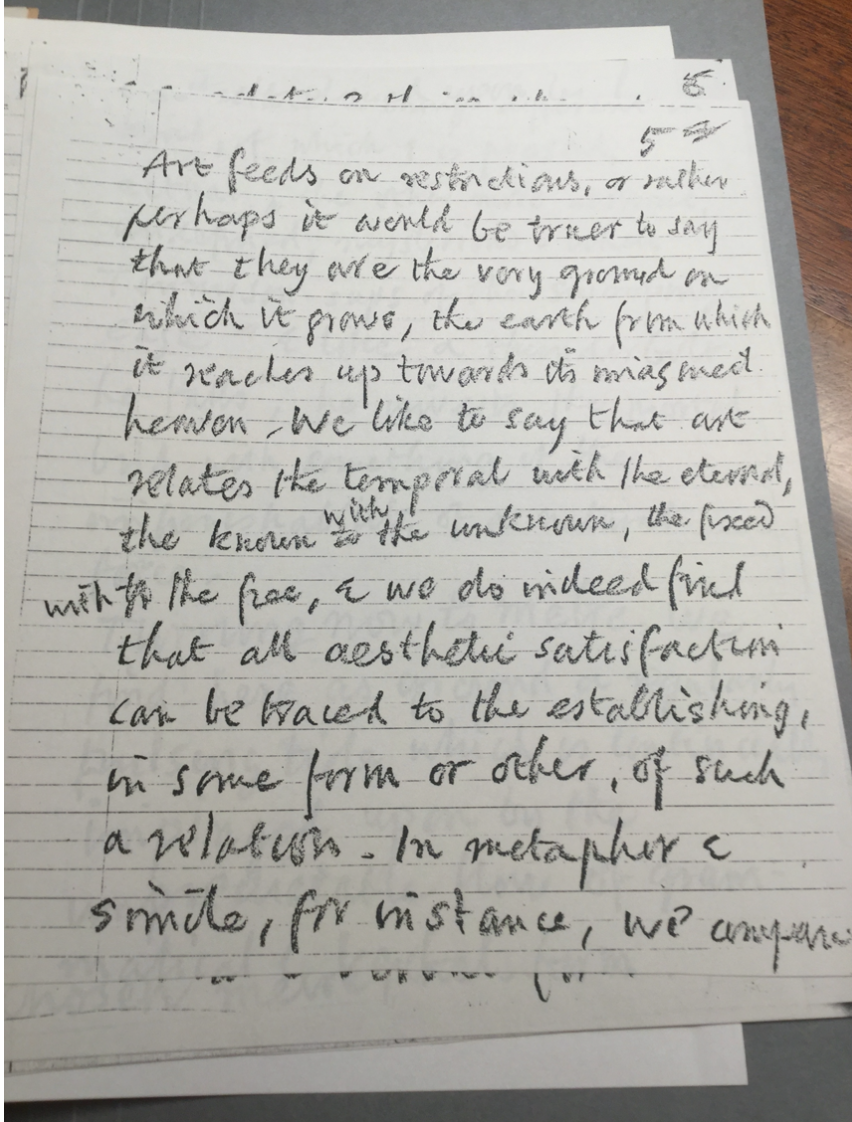 6
5
Art feeds on restrictions, or rather
perhaps it would be truer to say
that they are the very ground on
which it grows, the earth from which
it reaches up towards its
heaven. We like to say that art
relates the temporal with the eternal,
the known with the unknown, the fixed
with the free, & we do indeed find
that all aesthetic satisfaction
can be traced to the establishing,
in some form or other, of such
a relation. In metaphor &
simile, for instance, we compare